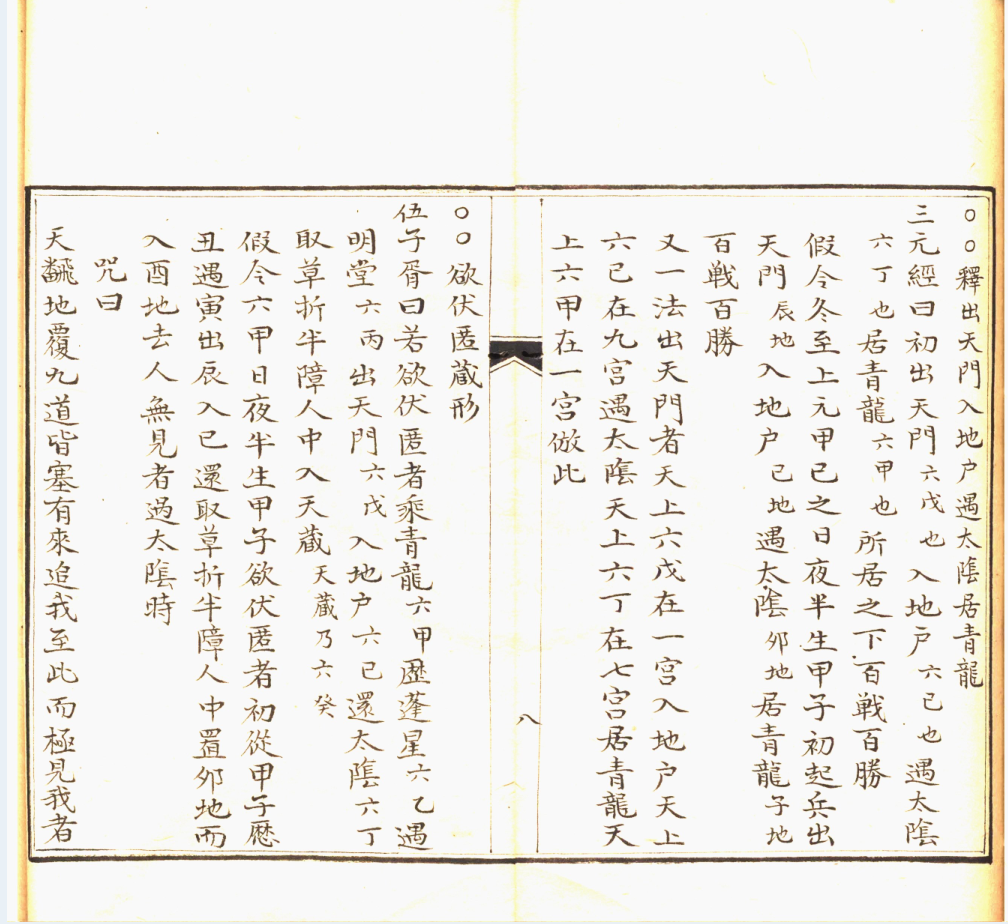 ○○釋出天門入地户遇太陰居青龍
三元經曰初出天門六戊也入地户六已也遇太陰
六丁也居青龍六甲也所居之下百戰百勝
假令冬至上元甲已之日夜半生甲子初起兵出
天門辰地入地户已地遇太陰夘地居青龍子地
百戰百勝
又一法出天門者天上六戊在一宫入地户天上
六已在九宫遇太陰天上六丁在七宫居青龍天
上六甲在一宫倣此
八
○○欲伏匿藏形
伍子胥曰若欲伏匿者乘青龍六甲歷蓬星六乙遇
明堂六丙出天門六戊入地户六已還太陰六丁
取草折半障人中入天藏天藏乃六癸
假令六甲日夜半生甲子欲伏匿者初從甲子歷
丑遇寅出辰入已還取草折半障人中置夘地而
入酉地去人無見者過太陰時
咒曰
天飜地覆九道皆塞有來追我至此而極見我者